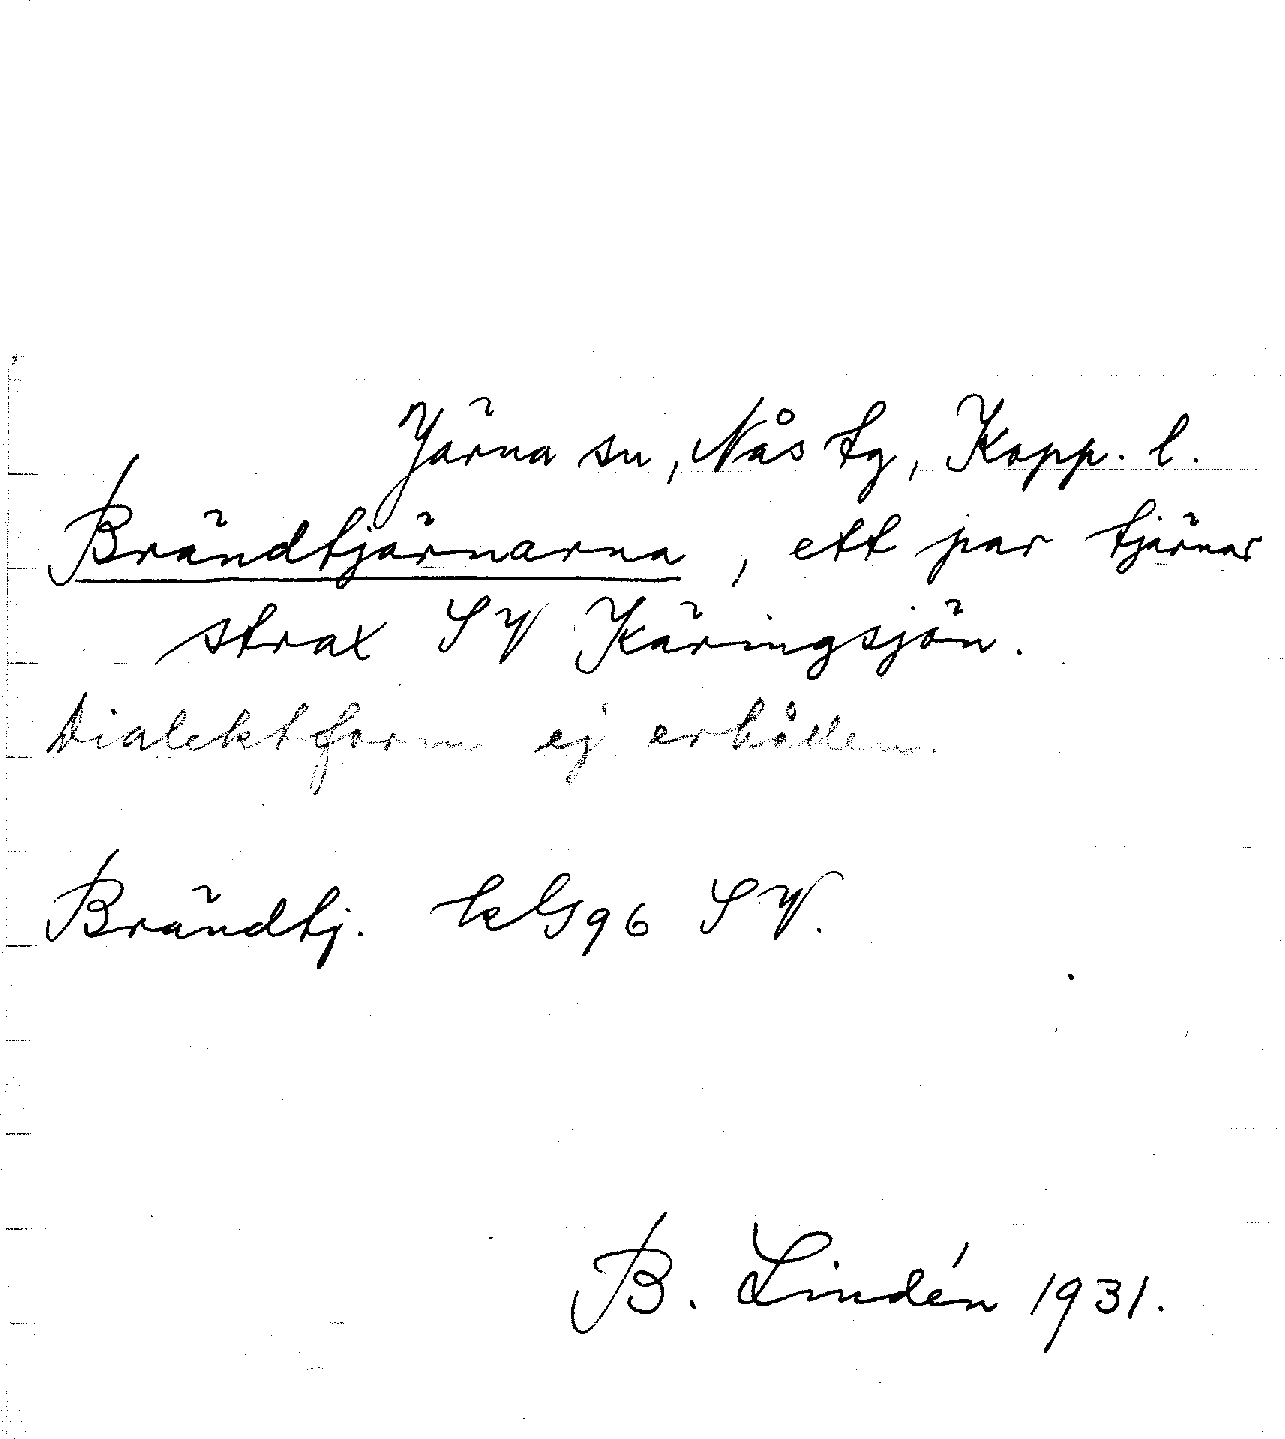 Järna sn, Nås tg, Kopp. l.
Brändtjärnarna, ett par tjärnar
strax SV Käringsjön.
Dialektform ej erhållen.
Brändtj. 96 SV.
B. Lindén 1931.